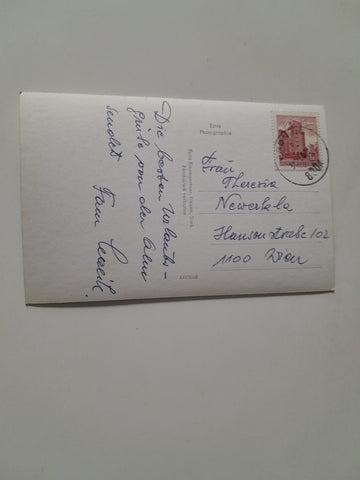 Die besten Urlaubs-
grüße von der Alm
sendet Fam.
Echte
Photographie
Nachdruck verboten
Frau
Theresia
Newerkla
Hansonstraße 102
1100 Wien